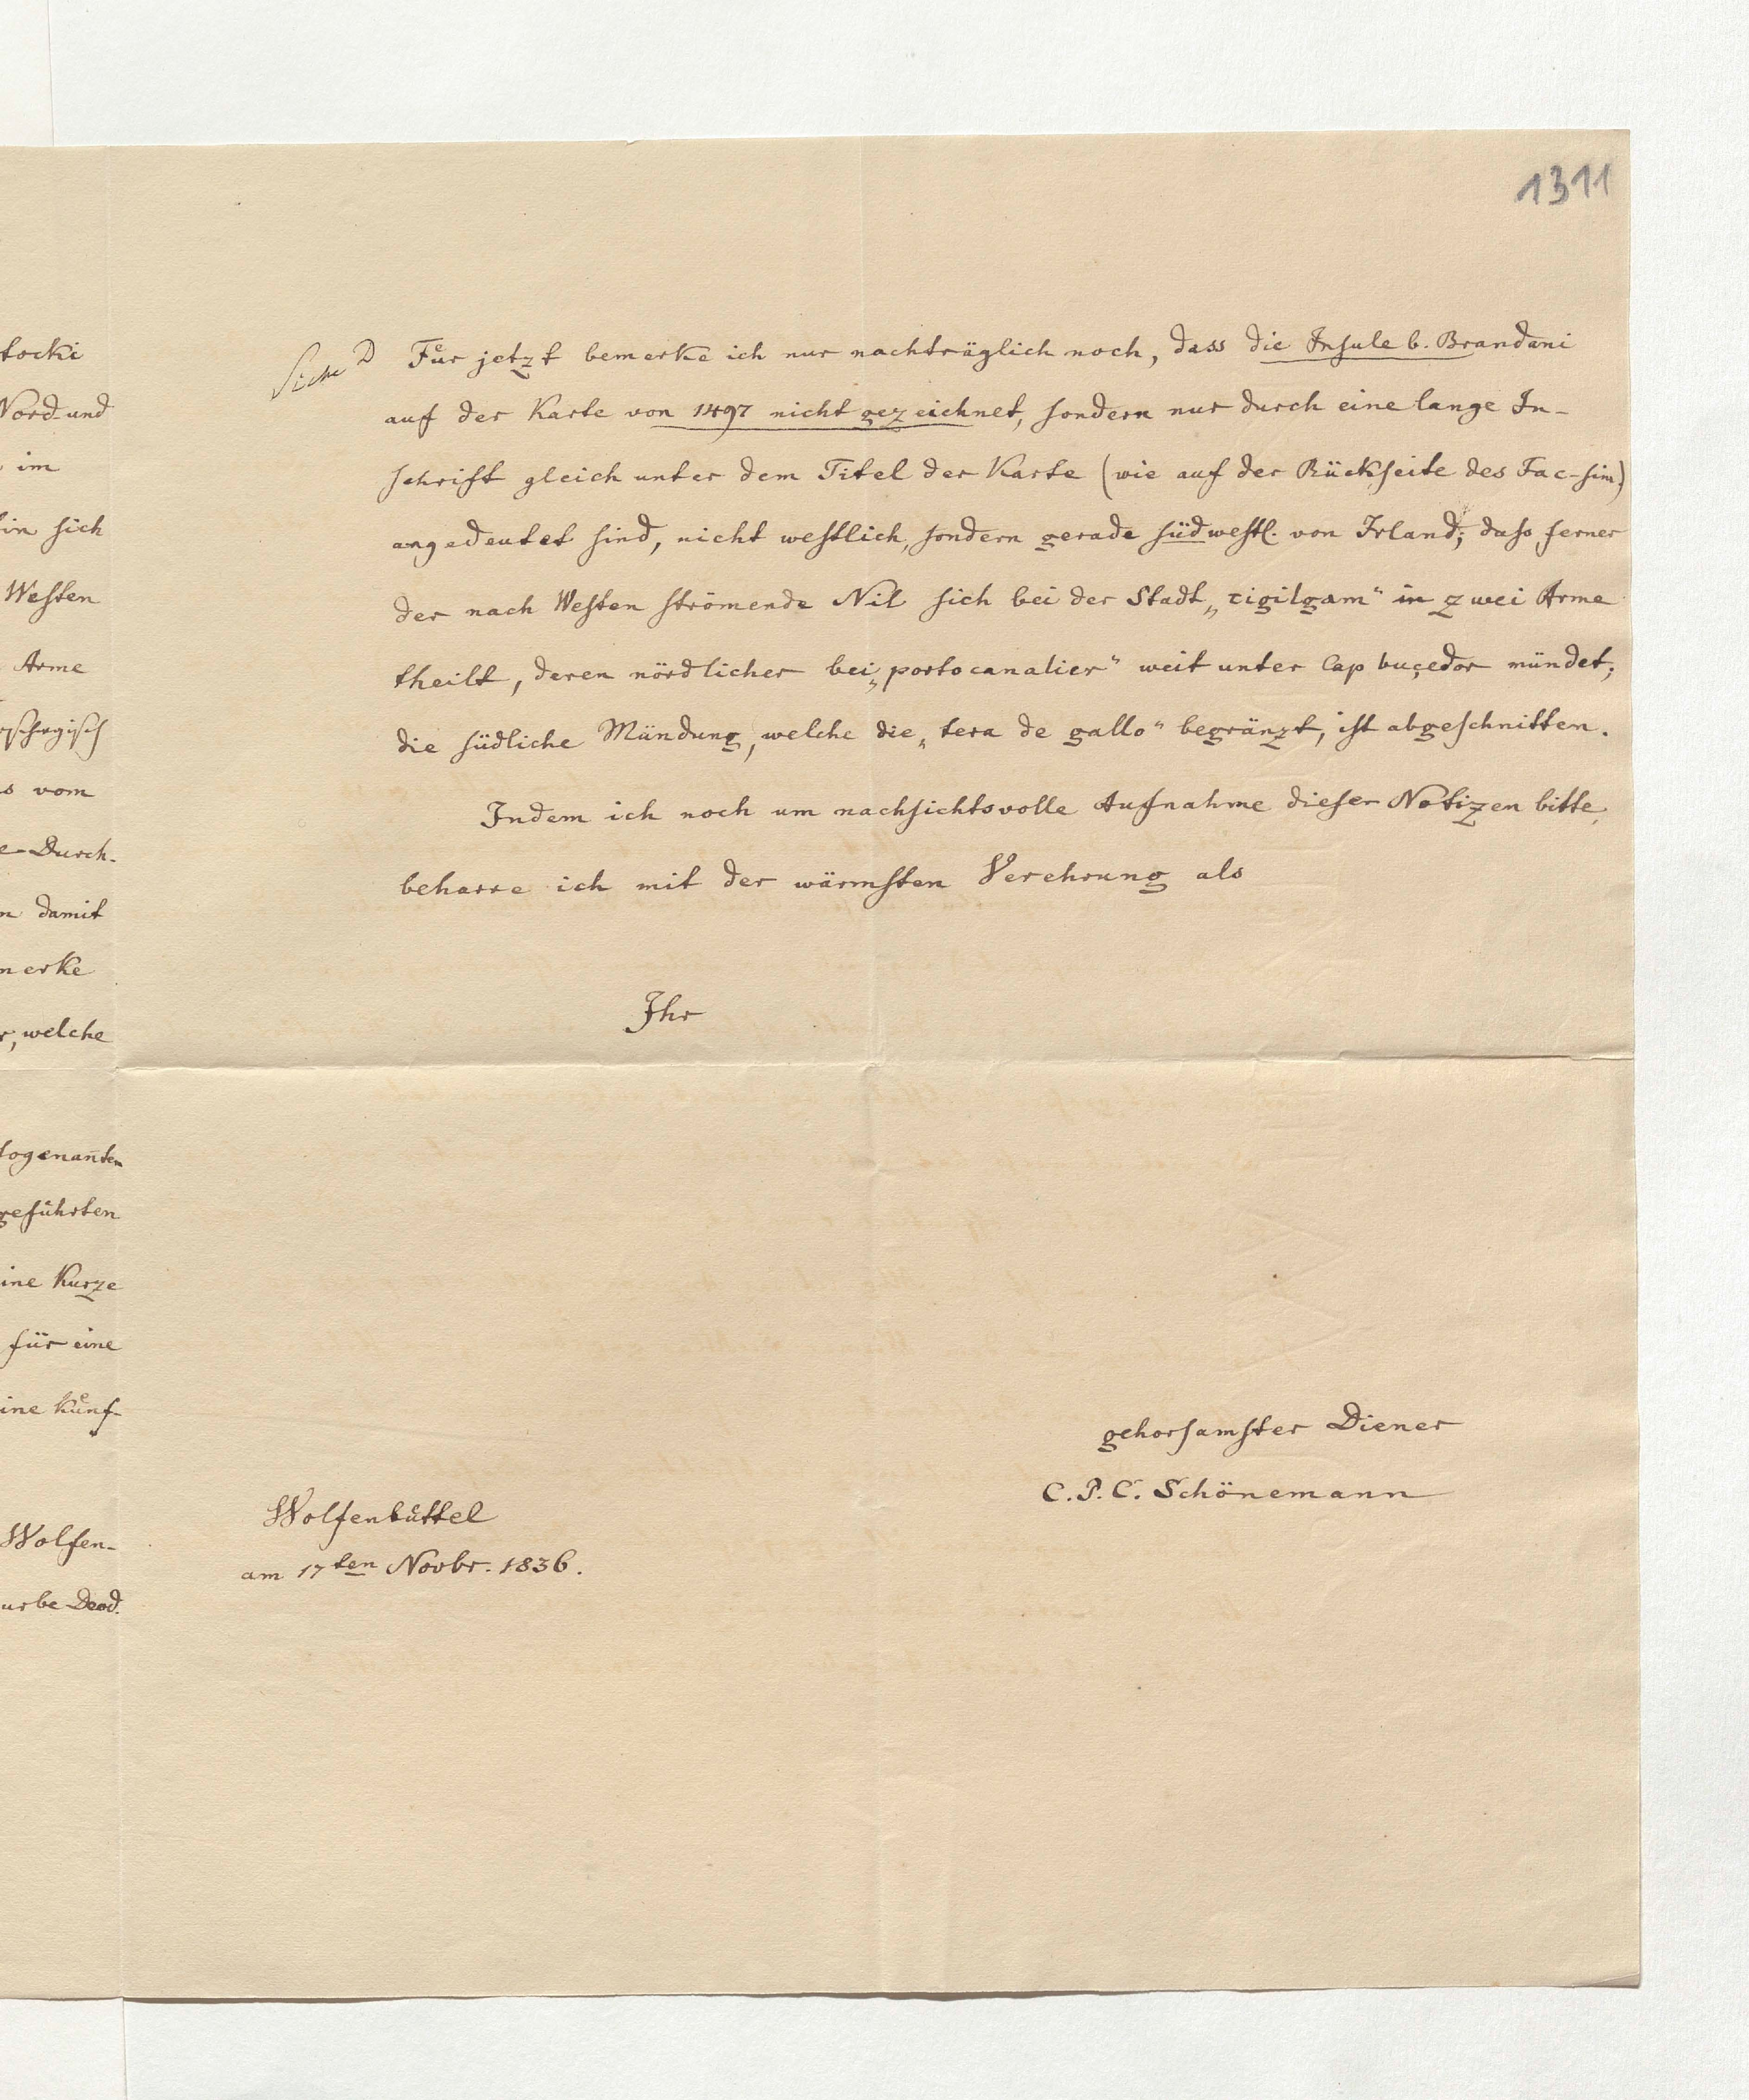 1311
tocki
Nord und
im
sich
Westen
Arme
vom
Durch-
damit
merke
welche
sogenan̄ten
geführten
ine Kurze
für eine
ine Künf-
Wolfen-
urbe Deod.
Siehe D Für jetzt bemerke ich nur nachträglich noch, dass die Insule b. Brandani
auf der Karte von 1497 nicht gezeichnet, sondern nur durch eine lange In-
schrift gleich unter dem Titel der Karte (wie auf der Rückseite des Fac-sim.)
angedeutet sind, nicht westlich, sondern gerade südwestl. von Irland; dass ferner
der nach Westen strömende Nil sich bei der Stadt „tigilgam“ in zwei Arme
theilt, deren nördlicher bei „portocanalier“ weit unter Cap buçedor mündet;
die südliche Mündung, welche die „tera de gallo“ begränzt, ist abgeschnitten.
Indem ich noch um nachsichtsvolle Aufnahme dieser Notizen bitte,
beharre ich mit der wärmsten Verehrung als
Ihr
gehorsamster Diener
C. P. C. Schönemann
Wolfenbüttel
am 17ten Novbr. 1836.